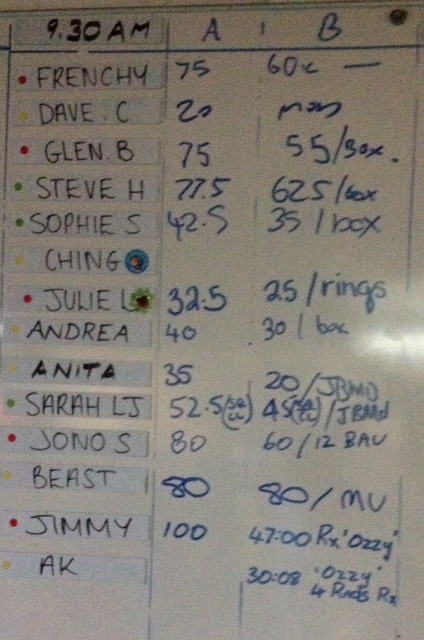 9.30 AM A B
FRENCHY 75 60x —
DAVE . C 20
GLEN. B 75 55/Box.
STEVE H 77.5 62.5/box
SOPHIE S 42.5 35 / box
CHING
JULIE L 32.5 25 / rings
ANDREA 40 30 / box
ANITA 35 20 / JBMD
SARAH LJ 52.5 45 / JBMd
JONO S 80 60 / 12 BAV
BEAST 80 80 / MU
JIMMY 100 47:00 Rx 'Ozzy'
AK 30:08 'Ozzy'
4 Rnds Rx